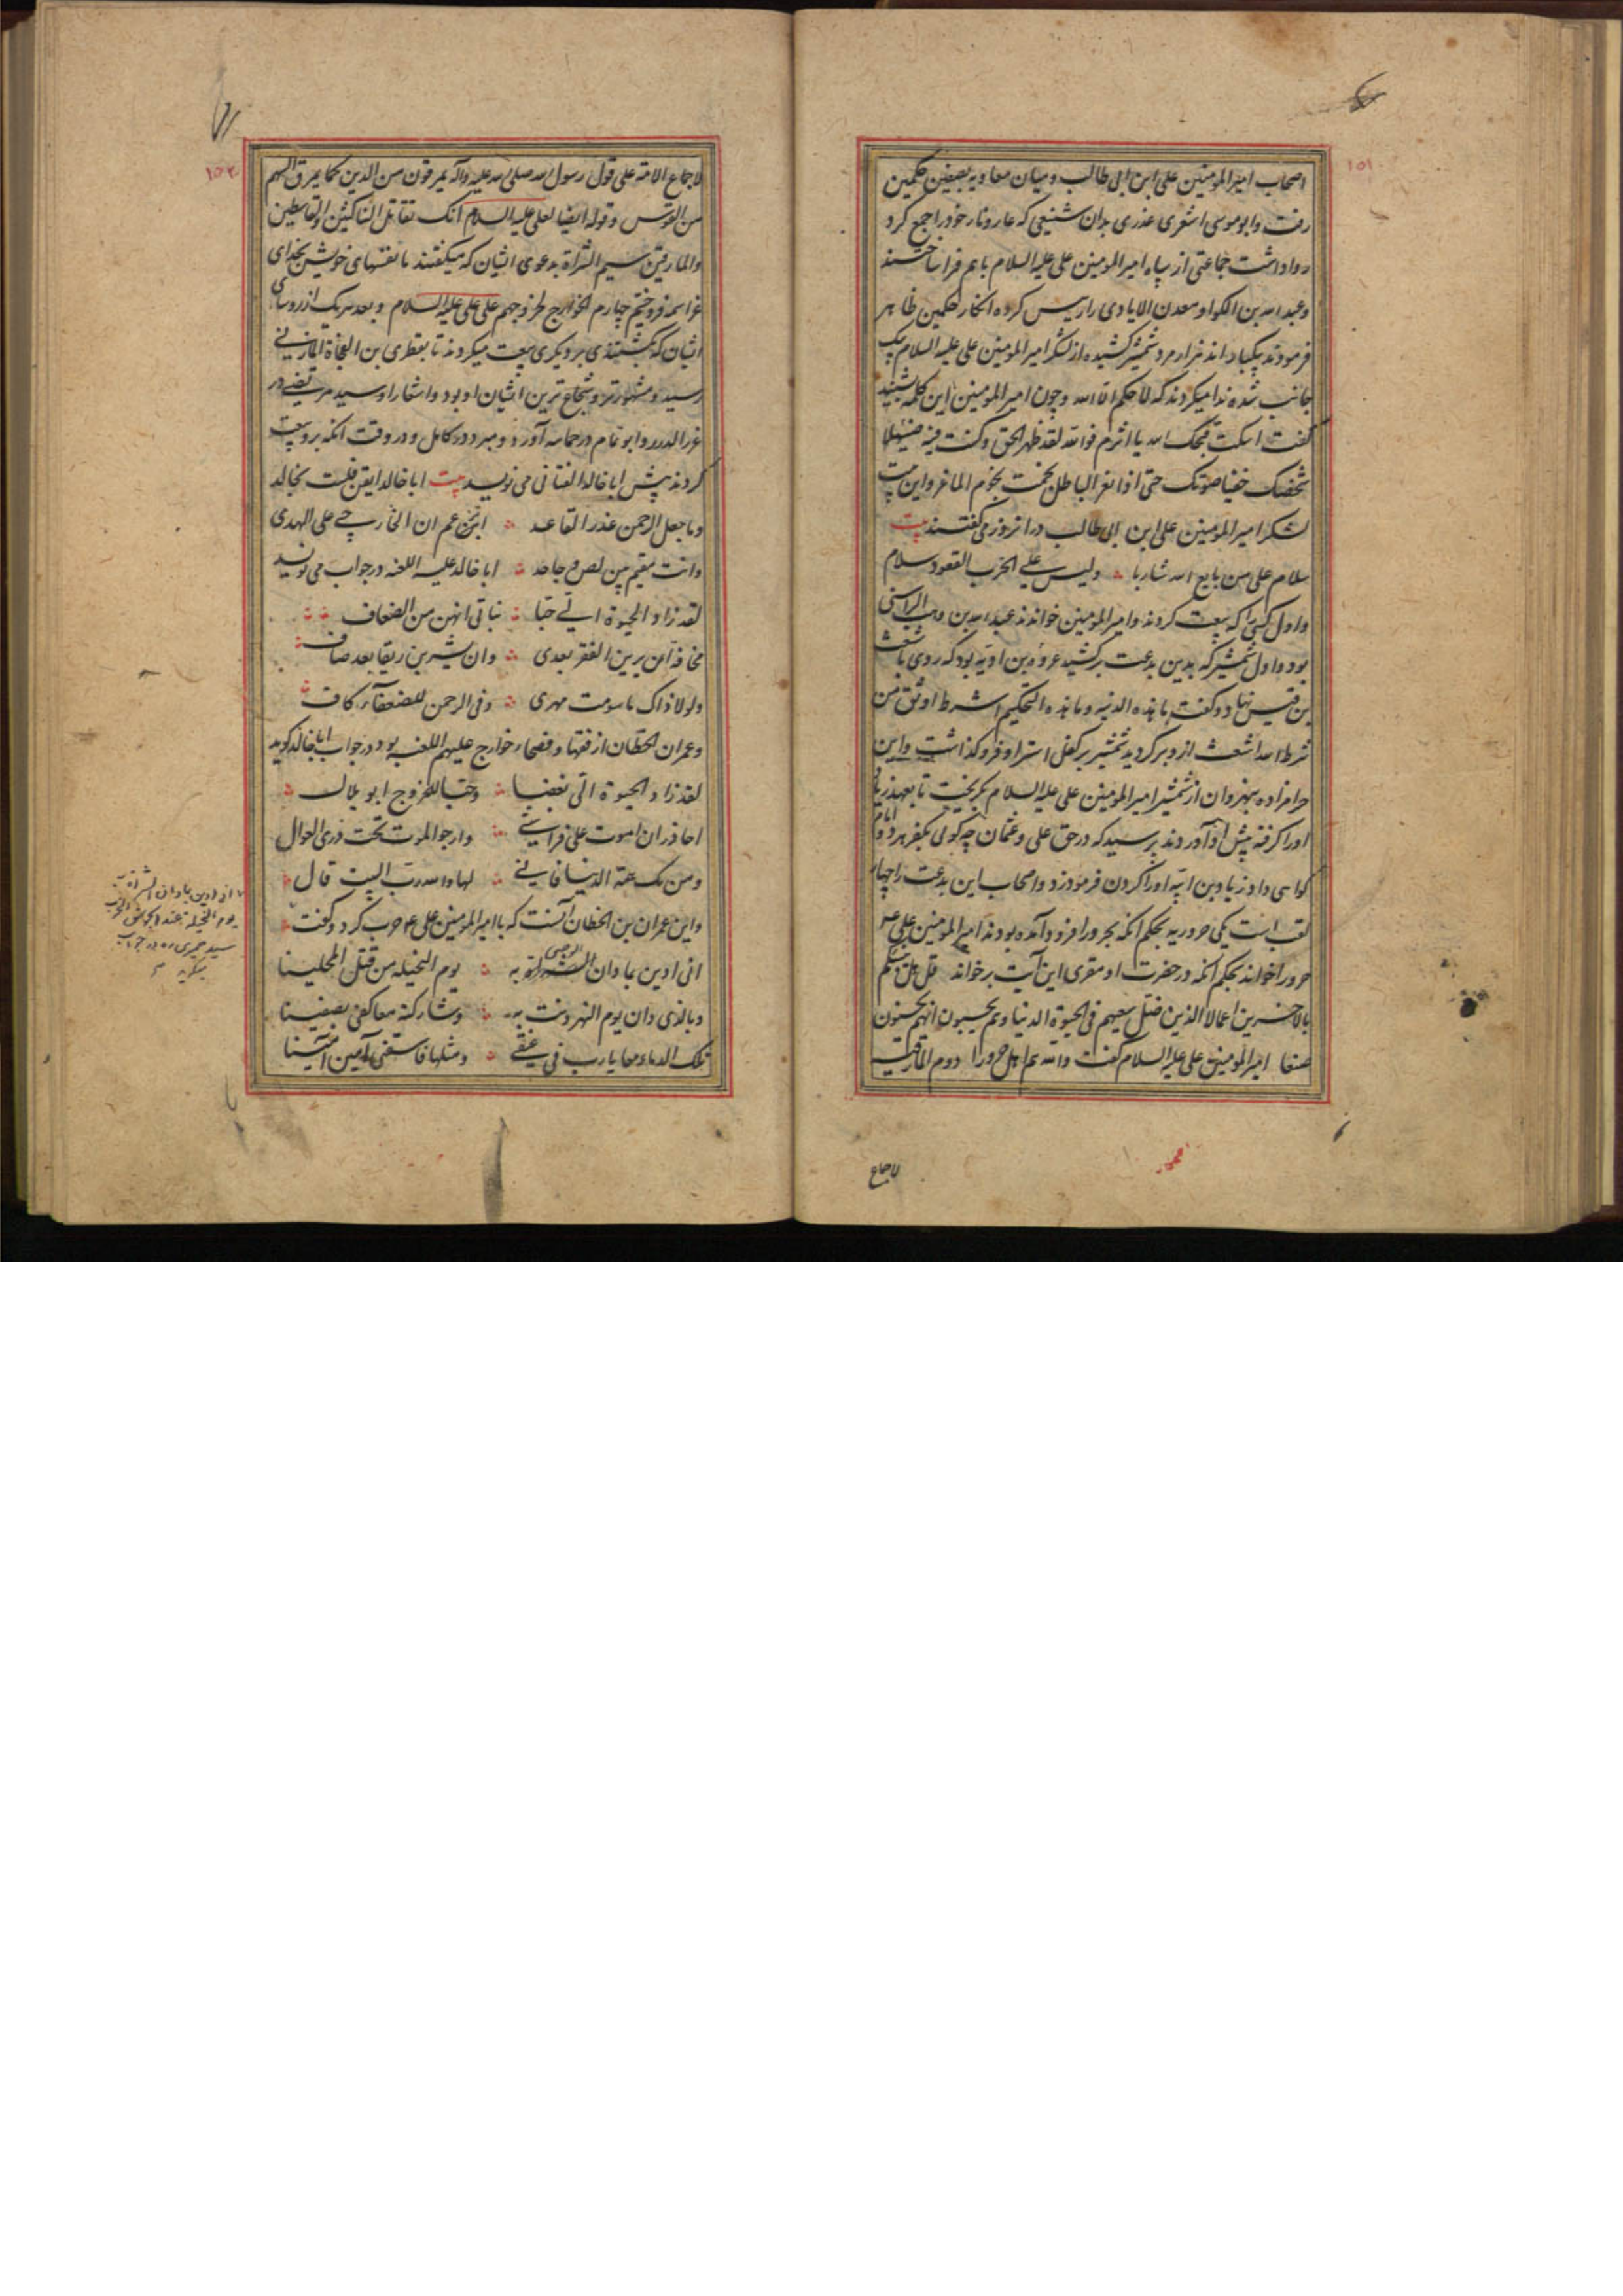 ۱۵۱
اصحاب امیر المومنین علی ابن ابی طالب و میان معاویه بصفین حکمین
رفت و ابو موسی اشعری عذری بدان شنیعی که عار و نار خود را جمع کرد
روا داشت جماعتی از سپاه امیر المومنین علی علیه السلام با هم فرا ساختند
و عبد الله بن الکوا و معدن الایادی را رییس کرده انکار حکمین ظاهر
فرمودند یکباره اند هزار مرد شمشیر کشیده از لشکر امیر المومنین علی علیه السلام یک
جانب شده ندا میکردند که لا حکم الا الله و چون امیر المومنین این کلمه بشنید
گفت اسکت قبحک الله یا اثرم فوالله لقد ظهر الحق و کنت فیه ضئیلا
شخصک خفیا صوتک حتی اذا نعر الباطل نجمت نجوم الماعز و این بیت
لشکر امیر المومنین علی ابن ابی طالب در انروز می گفتند بیت
سلام علی من بایع الله شاریا ∴ ولیس علی الحزب القعود سلام
و اول کسی را که بیعت کردند و امیر المومنین خواندند عبد الله بن وهب الراسبی
بود و اول شمشیر که بدین بدعت برکشید عروه بن ادیه بود که روی باشعث
بن قیس نهاد و گفت ما هذه الدنیه و ما هذه التحکیم اشرط اوثق من
شرط الله اشعث ازو برگردید شمشیر بر کفل استر او فرو گذاشت و این
حرامزاده بنهروان از شمشیر امیر المومنین علی علیه السلام بگریخت تا بعهد زیاد
او را گرفته پیش او آوردند پرسید که در حق علی و عثمان چه گوئی بکفر هر دو امام
گواهی داد زیاد بن ابیه او را گردن فرمود زد و اصحاب این بدعت را چهار
لقب است یکی حروریه بحکم آنکه بحرورا فرود آمده بودند امیر المومنین علی ع
حرورا خواند بحکم آنکه در حضرت او مقری این آیت برخواند قل هل ننبئکم
بالاخسرین اعمالا الذین ضل سعیهم فی الحیوة الدنیا و هم یحسبون انهم یحسنون
صنعا امیر المومنین علی علیه السلام گفت والله هم اهل حرورا دوم المارقه
لاجماع
۱۵۲
لاجماع الامة علی قول رسول الله صلی الله علیه وآله یمرقون من الدین کما یمرق السهم
من القوس و قوله ایضا لعلی علیه السلام انک تقاتل الناکثین والقاسطین
والمارقین سیم الشراة بدعوی ایشان که میگفتند ما نفسهای خویش بخدای
عز اسمه فروختیم چهارم الخوارج لخروجهم علی علی علیه السلام و بعد هر یک از روسای
ایشان که بکشتندی بر دیگری بیعت میکردند تا بقطری بن الفجاة المازنی
رسید و مشهورتر و شجاع ترین ایشان او بود و اشعار او سید مرتضی در
غرر الدرر و ابو تمام در حماسه آورد و مبرد در کامل و در وقت آنکه برو بیعت
کردند پیش ابا خالد القنانی می نویسد بیت ابا خالد ایقن فلست بخالد
و ما جعل الرحمن عذر القاعد ∴ اتزعم ان الخارجی علی الهدی
وانت مقیم بین لص و جاحد ∴ ابا خالد علیه اللعنه در جواب می نویسد
لقد زاد الحیوة الی حبا ∴ بناتی انهن من الضعاف
مخافة ان یرین الفقر بعدی ∴ وان یشربن رنقا بعد صاف
ولولا ذاک ما سومت مهری ∴ وفی الرحمن للضعفاء کاف
و عمران الحطان از فقها و فصحاء خوارج علیهم اللعنه بود در جواب ابا خالد گوید
لقد زاد الحیوة الی بغضا ∴ وحبا للخروج ابو بلال
احاذر ان اموت علی فراشی ∴ وارجو الموت تحت ذری العوال
ومن یک همه الدنیا فانی ∴ لها والله رب البیت قال
و این عمران بن الحطان آنست که با امیر المومنین علی ع حرب کرد و گفت
انی ادین بما دان الشراة به ∴ یوم النخیله من قتل المحلینا
وبالذی دان یوم النهر دنت به ∴ وشارکته معا کفی بصفینا
تلک الدماء معا یا رب فی عنقی ∴ ومثلها فاسقنی آمین آمینا
انی ادین بما دان الشراة به
یوم النخیله عند
سید حمیری ره در جواب
میگوید